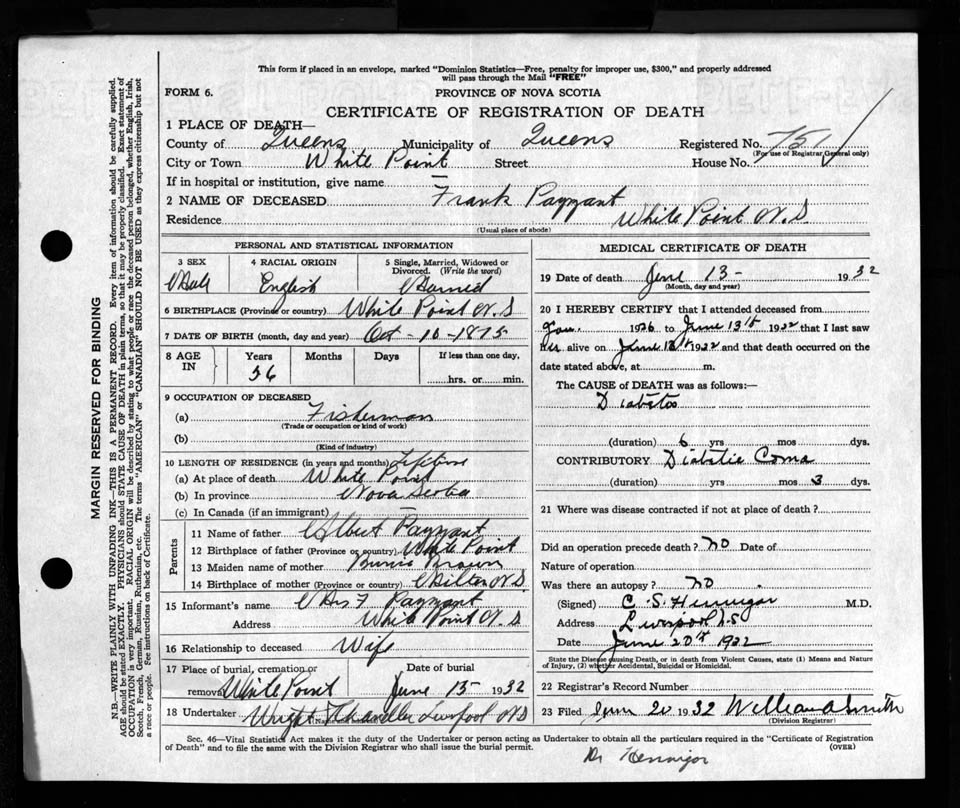 This form if placed in an envelope, marked "Dominion Statistics—Free, penalty for improper use, $300," and properly addressed
will pass through the Mail "FREE"
FORM 6.
PROVINCE OF NOVA SCOTIA
CERTIFICATE OF REGISTRATION OF DEATH
1 PLACE OF DEATH—
County of Queens Municipality of Queens Registered No. 751
(For use of Registrar General only)
City or Town White Point Street House No.
If in hospital or institution, give name —
2 NAME OF DECEASED Frank Payzant
Residence White Point N.S
(Usual place of abode)
PERSONAL AND STATISTICAL INFORMATION
3 SEX 4 RACIAL ORIGIN 5 Single, Married, Widowed or
Divorced. (Write the word)
Male English Married
6 BIRTHPLACE (Province or country) White Point N.S
7 DATE OF BIRTH (month, day and year) Oct - 10 - 1875
8 AGE IN Years Months Days If less than one day,
56 hrs. or min.
9 OCCUPATION OF DECEASED
(a) Fisherman
(Trade or occupation or kind of work)
(b)
(Kind of industry)
10 LENGTH OF RESIDENCE (in years and months) Lifetime
(a) At place of death White Point
(b) In province Nova Scotia
(c) In Canada (if an immigrant) —
Parents
11 Name of father Albert Payzant
12 Birthplace of father (Province or country) White Point
13 Maiden name of mother Brown
14 Birthplace of mother (Province or country) Milton N.S
15 Informant's name Mrs F Payzant
Address White Point N.S
16 Relationship to deceased Wife
17 Place of burial, cremation or Date of burial
removal White Point June 15 1932
18 Undertaker Wright Chandler Liverpool N S
MEDICAL CERTIFICATE OF DEATH
19 Date of death June 13 - 1932
(Month, day and year)
20 I HEREBY CERTIFY that I attended deceased from
1926 to June 13th 1932 that I last saw
alive on June 1932 and that death occurred on the
date stated above, at m.
The CAUSE of DEATH was as follows:—
Diabetes
(duration) 6 yrs mos dys.
CONTRIBUTORY Diabetic Coma
(duration) yrs mos 3 dys.
21 Where was disease contracted if not at place of death?
Did an operation precede death? No Date of
Nature of operation
Was there an autopsy? no
(Signed) C. S. Hennigar M.D.
Address Liverpool N.S.
Date June 20th 1932
State the Disease causing Death, or in death from Violent Causes, state (1) Means and Nature
of Injury, (2) whether Accidental, Suicidal or Homicidal.
22 Registrar's Record Number
23 Filed June 20 1932 William A Smith
(Division Registrar)
Sec. 46—Vital Statistics Act makes it the duty of the Undertaker or person acting as Undertaker to obtain all the particulars required in the "Certificate of Registration
of Death" and to file the same with the Division Registrar who shall issue the burial permit. (OVER)
Dr Hennigar
MARGIN RESERVED FOR BINDING
N.B.—WRITE PLAINLY WITH UNFADING INK—THIS IS A PERMANENT RECORD. Every item of information should be carefully supplied.
AGE should be stated EXACTLY. PHYSICIANS should STATE CAUSE OF DEATH in plain terms, so that it may be properly classified. Exact statement of
OCCUPATION is very important. RACIAL ORIGIN will be described by stating to what people or race the deceased person belonged, whether English, Irish,
Scotch, French, German, Russian, Ruthenian, etc. The terms "AMERICAN" or "CANADIAN" SHOULD NOT BE USED as they express citizenship but not
a race or people. See instructions on back of Certificate.